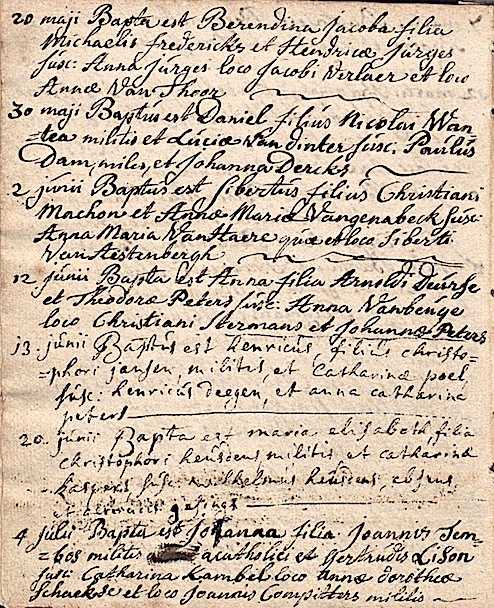 20 maji Bapta est Berendina Jacoba filia
Michaelis fredericks et Hendricæ Jurges
susc: Anna Jurges loco Jacobi Verlaer et loco
Annæ Van Thoor
30 maji Baptus est Daniel filius Nicolai Wan-
-tea militis et Luciæ Van dinter susc: Paulus
Dam, miles, et Johanna Dercks
2 junii Baptus est sibertus filius Christiani
Machon et Annæ Mariæ Vangenabeck susc:
Anna Maria VanHaere quæ et loco Siberti
VanAestenbergh
12 junii Bapta est Anna filia Arnoldi Deurse
et Theodoræ Peters susc: Anna Vanbenge
loco Christiani Stermans et Johannæ Peters
13. junii Baptus est henricus, filius christo-
-phori jansen, militis, et Catharinæ poel
susc: henricus deegen, et anna catharina
peters
20. junii Bapta est maria elisabeth, filia
christophori heusdens militis et catharinæ
kaspers susc: wilhelmus heusdens,
et
4 Julii Bapta est Johanna filia Joannis Tem-
-bos militis acatholici et Gertrudis Lison
susc: Catharina Kambel loco annæ dorotheæ
Schaekse et loco Joannis Compitters militis